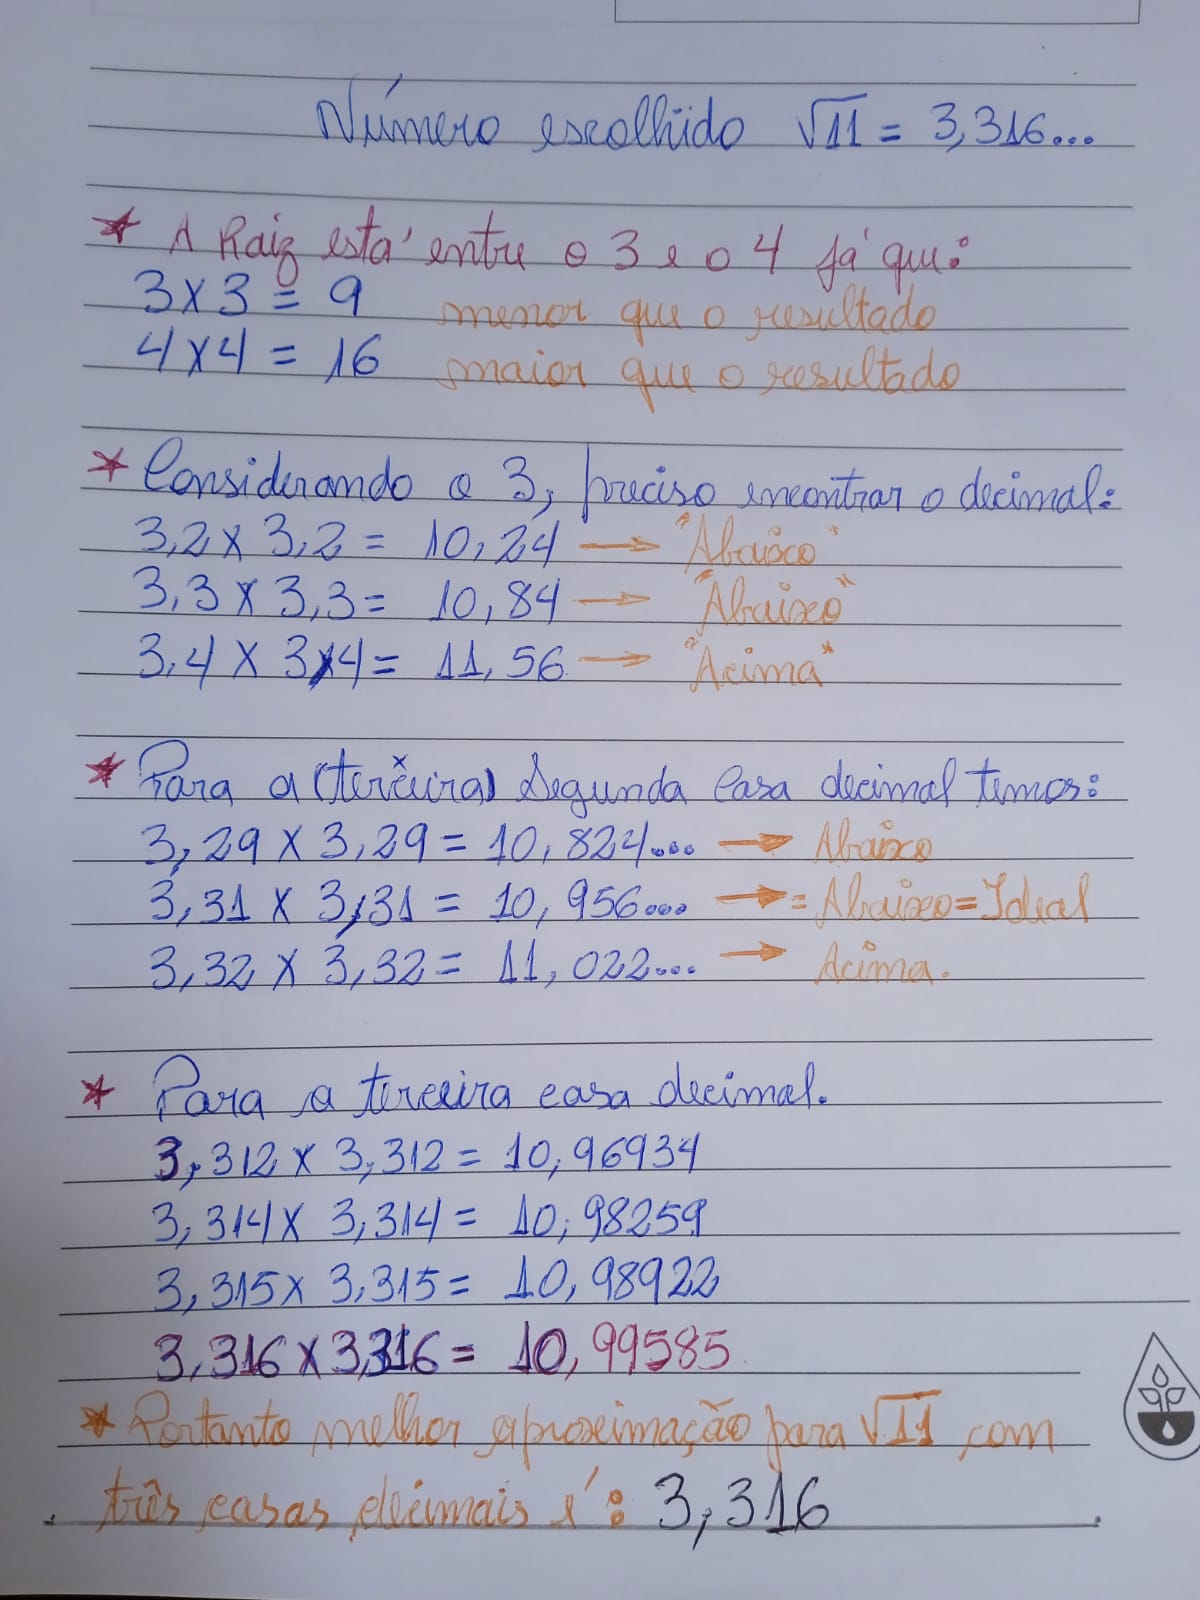 Número escolhido √11 = 3,316...
* A Raiz está entre o 3 e o 4 já que:
3 x 3 = 9 menor que o resultado
4 x 4 = 16 maior que o resultado
* Considerando o 3, preciso encontrar o decimal:
3,2 x 3,2 = 10,24 → "Abaixo"
3,3 x 3,3 = 10,84 → "Abaixo"
3,4 x 3,4 = 11,56 → "Acima"
* Para a (terceira) Segunda casa decimal temos:
3,29 x 3,29 = 10,824... → Abaixo
3,31 x 3,31 = 10,956... → = Abaixo = Ideal
3,32 x 3,32 = 11,022... → Acima.
* Para a terceira casa decimal.
3,312 x 3,312 = 10,96934
3,314 x 3,314 = 10,98259
3,315 x 3,315 = 10,98922
3,316 x 3,316 = 10,99585
* Portanto melhor aproximação para √11 com
três casas decimais é: 3,316